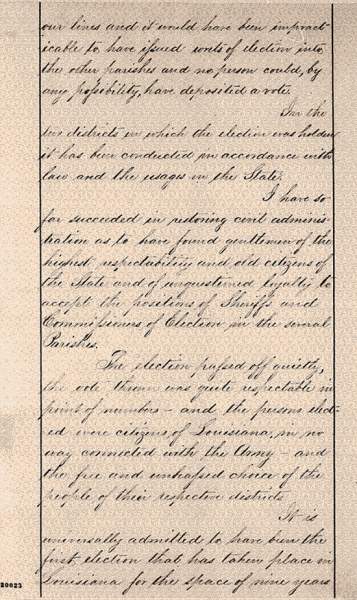 our lines and it would have been impract-
icable to have issued writs of election into
the other parishes and no person could, by
any possibility, have deposited a vote.
In the
two districts in which the election was holden
it has been conducted in accordance with
law and the usages in the State.
I have so
far succeeded in restoring civil adminis-
tration as to have found gentlemen of the
highest respectability and old citizens of
the State and of unquestioned loyalty to
accept the positions of Sheriffs and
Commissioners of Election in the several
Parishes.
The election passed off quietly,
the vote thrown was quite respectable in
point of numbers – and the persons elect-
ed were citizens of Louisiana, in no
way connected with the Army – and
the free and unbiassed choice of the
people of their respective districts
It is
universally admitted to have been the
first election that has taken place in
Louisiana for the space of nine years
20023